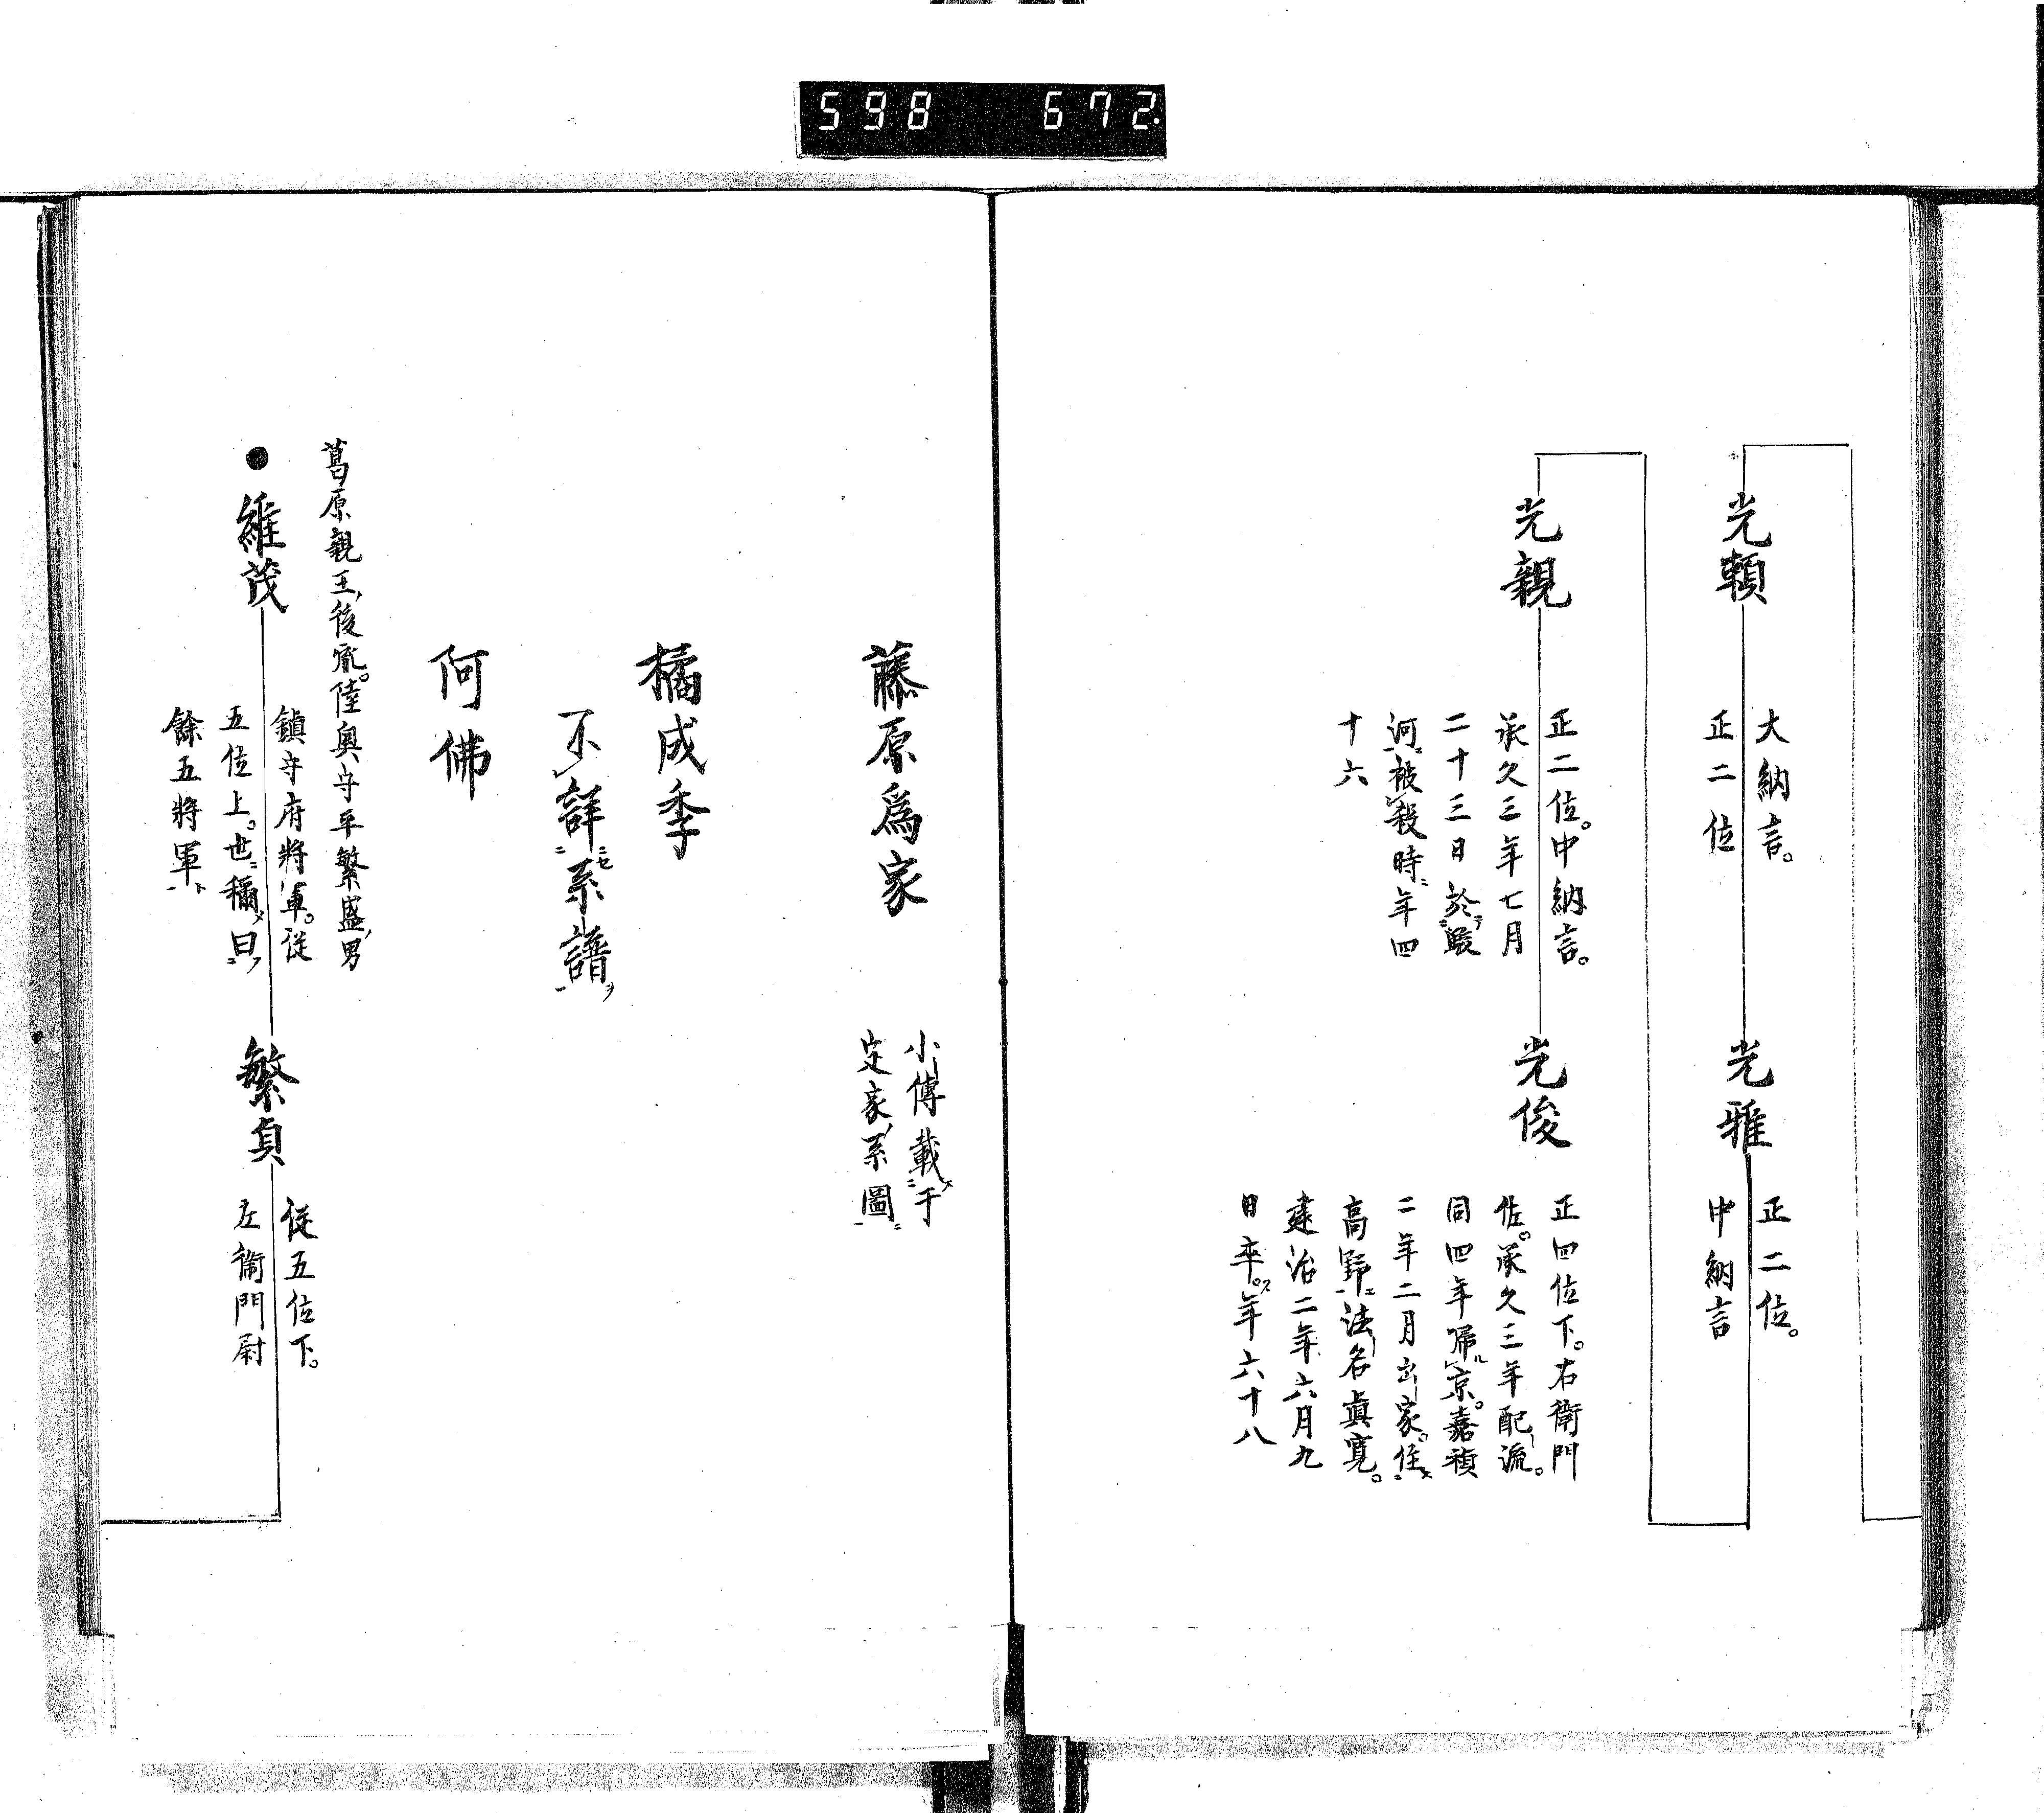 598 672.
光頼
大納言。
正二位
光雅
正二位。
中納言
光親
正二位。中納言。
承久三年七月
二十三日於駿
河被殺時年四
十六
光俊
正四位下。右衛門
佐。承久三年配流。
同四年帰京。嘉禎
二年二月出家。住
高野法名眞寛。
建治二年六月九
日卒。年六十八
藤原爲家
小傳載于
定家系圖
橘成季
不詳系譜
阿佛
葛原親王後胤。陸奥守平繁盛男
●維茂
鎮守府將軍。従
五位上。世稱曰
餘五將軍
繁貞
従五位下。
左衞門尉